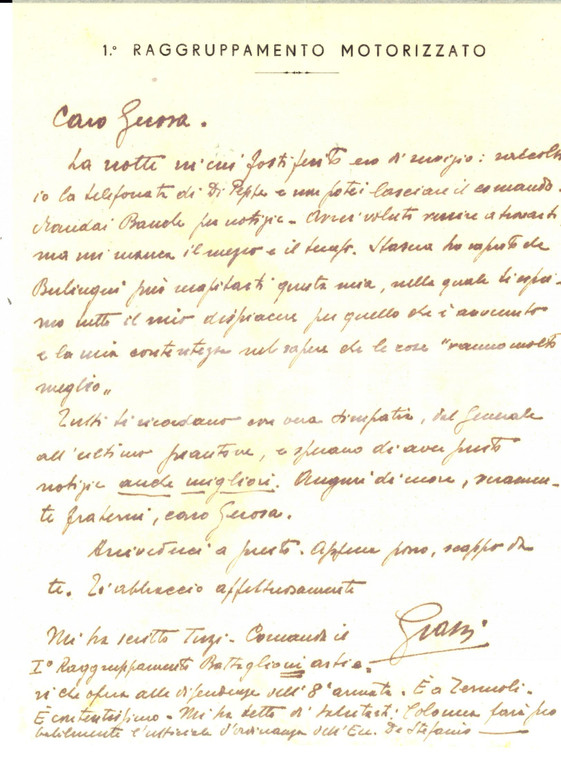 1.° RAGGRUPPAMENTO MOTORIZZATO
Caro Gerosa.
La notte in cui fosti ferito ero di servizio: raccolsi
io la telefonata di Di Peppe e non potei lasciare il comando.
Mandai Bande per notizie - Avrei voluto venire a trovarti
ma mi manca il mezzo e il tempo. Stasera ho saputo che
Berlingieri può recapitarti questa mia, nella quale ti espri-
mo tutto il mio dispiacere per quello che è avvenuto
e la mia contentezza nel sapere che le cose "vanno molto
meglio„
Tutti ti ricordano con vera simpatia, dal Generale
all'ultimo piantone, e sperano di aver presto
notizie anche migliori. Auguri di cuore, veramen-
te fraterni, caro Gerosa.
Arrivederci a presto. Appena posso, scappo da
te. Ti abbraccio affettuosamente
Grassi
Mi ha scritto Terzi - Comanda il
I° Raggruppamento Battaglioni artie-
ri che opera alle dipendenze dell'8ª armata. È a Termoli.
È contentissimo - Mi ha detto di salutarti. Colonna farà pro
babilmente l'ufficiale d'ordinanza dell'Ecc. De Stefanis